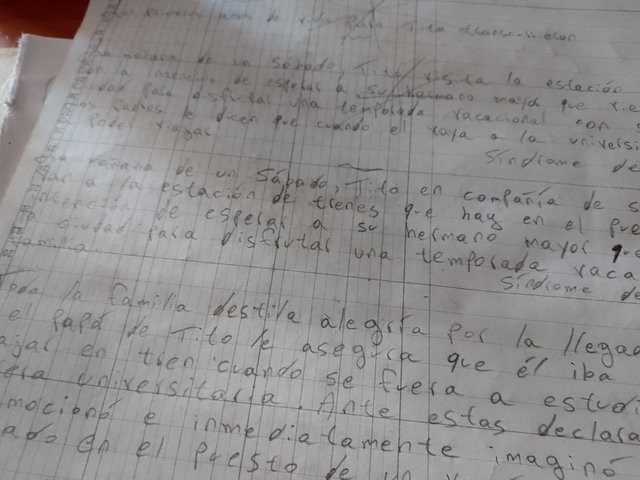 primeros años de vida para Tito transcurrieron
mañana de un Sábado, Tito visita la estación
con la intención de esperar a su hermano mayor que vie
ciudad para disfrutar una temporada vacacional con s
los padres le dicen que cuando el vaya a la universi
poder viajar
Síndrome de
mañana de un Sábado, Tito en compañía de s
van a la estación de trenes que hay en el pue
intención de esperar a su hermano mayor que
a ciudad para disfrutar una temporada vaca
familia.
Síndrome de
Toda la familia destila alegría por la llegad
el papá de Tito le asegura que él iba
ajar en tren cuando se fuera a estudi
era universitaria. Ante estas declara
mocionó e inmediatamente imaginó
ado en el puesto de un